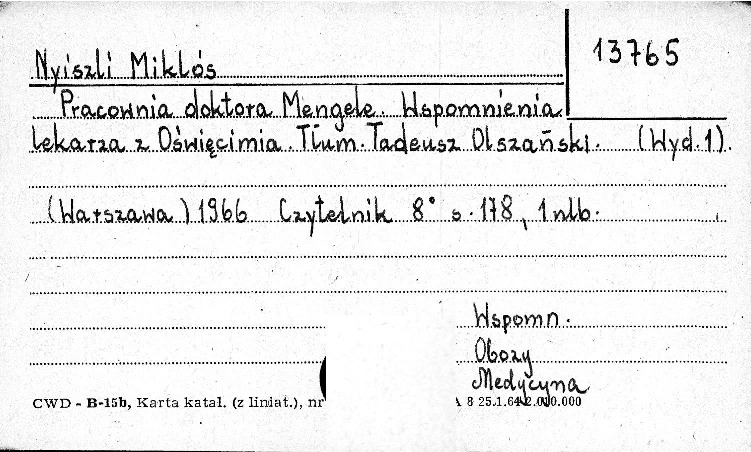 13765
Nyiszli Miklós
Pracownia doktora Mengele. Wspomnienia
lekarza z Oświęcimia. Tłum. Tadeusz Olszański. (Wyd. 1).
(Warszawa) 1966 Czytelnik 8° s. 178, 1 nlb.
Wspomn.
Obozy
Medycyna
CWD - B-15b, Karta katal. (z liniat.), nr
A 8 25.1.64 2.000.000